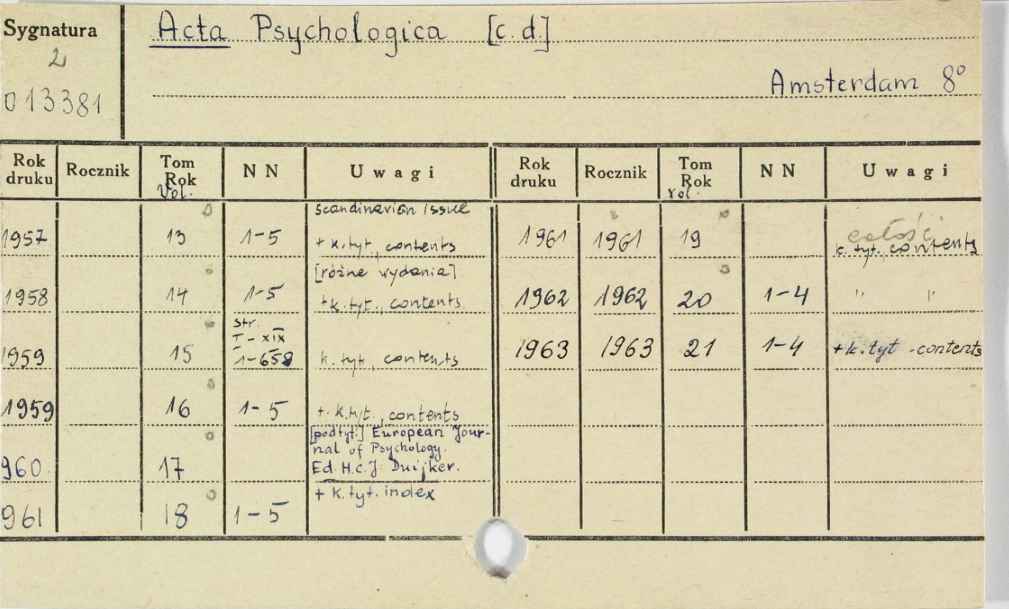 Sygnatura
2
013381
Acta Psychologica [c.d.]
Amsterdam 8°
Rok druku Rocznik Tom Rok Vol. NN Uwagi Rok druku Rocznik Tom Rok Vol. NN Uwagi
scandinavian issue
1957 13 1-5 + k.tyt., contents 1961 1961 19 całość k. tyt. contents
[różne wydania]
1958 14 1-5 +k.tyt., contents 1962 1962 20 1-4 " "
str.
I-XIX
1959 15 1-658 k.tyt., contents 1963 1963 21 1-4 +k.tyt-contents
1959 16 1-5 +.k.tyt., contents
[podtyt.] European Jour-
nal of Psychology.
960 17 Ed H.C.J. Duijker.
+ k.tyt. index
961 18 1-5